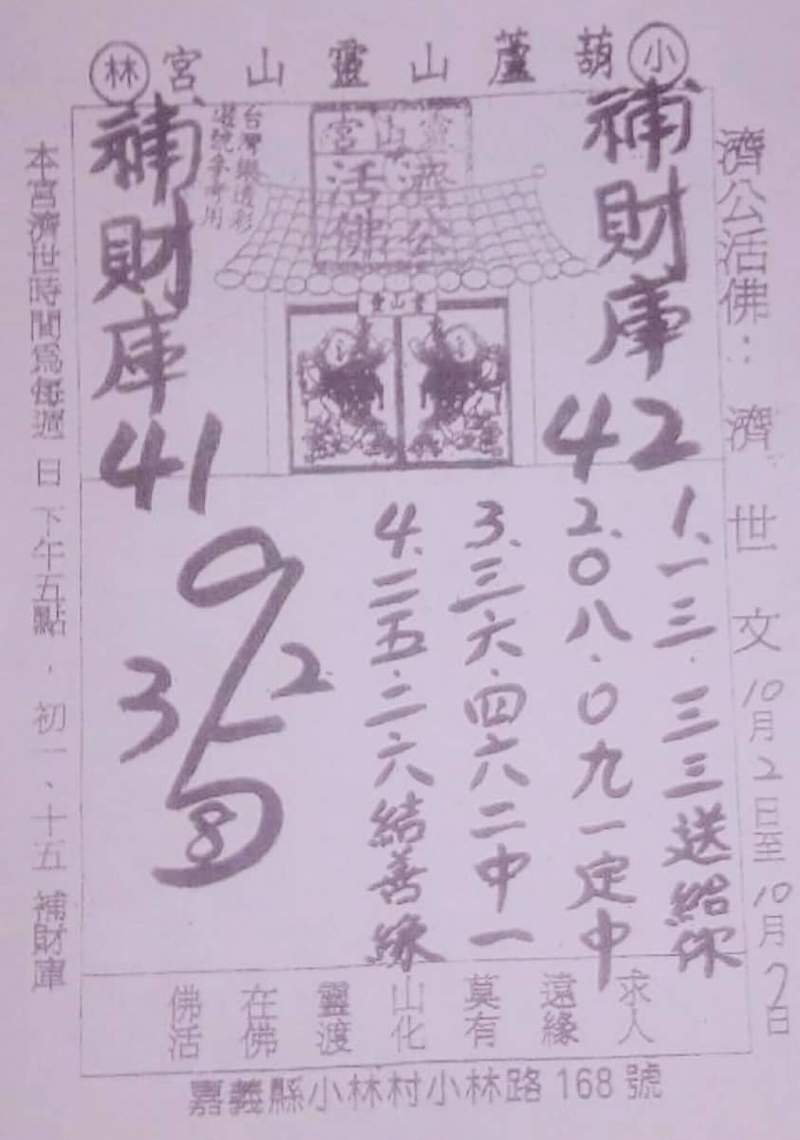 小
葫蘆山靈山宮
林
濟公活佛：濟世文10月2日至10月7日
補財庫42
靈山宮
濟公
活佛
靈山宮
台灣緞透彩
選號參考用
補財庫41
1、一三.三三送給你
2、0八.0九一定中
3、三六.四六二中一
4、二五.二六結善緣
9
3
2
5
8
求人
遠緣
莫有
山化
靈渡
在佛
佛活
本宮濟世時間為每週日下午五點，初一、十五補財庫
嘉義縣小林村小林路168號